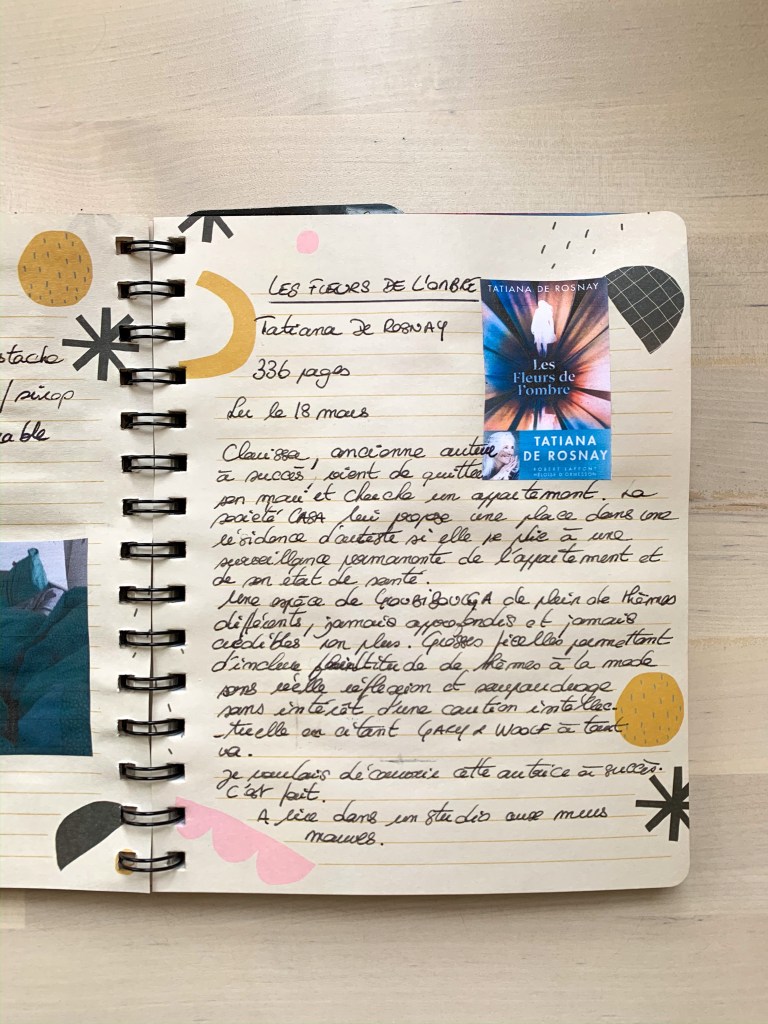 stache
/ sirop
able
LES FLEURS DE L'OMBRE
Tatiana DE ROSNAY
336 pages
Lu le 18 mars
TATIANA DE ROSNAY
Les
Fleurs de
l'ombre
TATIANA
DE ROSNAY
ROBERT LAFFONT
HÉLOÏSE D'ORMESSON
Clarissa, ancienne auteure
à succès, vient de quitter
son mari et cherche un appartement. La
société CASA lui propose une place dans une
résidence d'artiste si elle se plie à une
surveillance permanente de l'appartement et
de son état de santé.
Une espèce de GOUBIBOULGA de plein de thèmes
différents, jamais approfondis et jamais
crédibles non plus. Grosses ficelles permettant
d'inclure plein de thèmes à la mode
sans réelle réflexion et saupoudrage
sans intérêt d'une caution intellec-
-tuelle en citant GARY & WOOLF à tout
va.
Je voulais découvrir cette autrice à succès.
C'est fait.
A lire dans un studio aux murs
mauves.